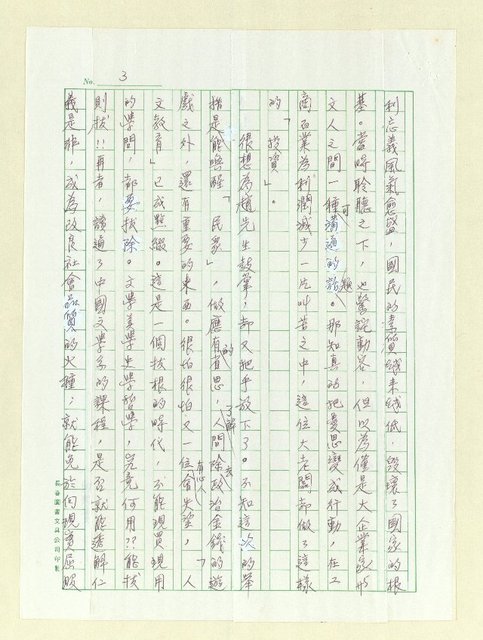 No. 3
利忘義風氣愈盛，國民的素質越來越低，毀壞了國家的根
基。當時聆聽之下，也驚詫動容，但以為僅是大企業家形
文人之間一種可溝通的話題。那知真的把憂思變成行動，在工
商百業為利潤減少一片叫苦之中，這位大老闆卻做了這樣
的「投資」。
很想為趙先生鼓掌，卻又把手放下了。不知這次的舉
措是能喚醒「民眾」，做應有的省思，了解人間除去政治金錢的遊
戲之外，還有重要的東西。很怕很怕又一位有心人會失望，「人
文教育」已成點綴。這是一個拔根的時代，不能現買現用
的學問，都要拔除。文學美學史學哲學，究竟何用？？能拔
則拔！！再者，讀通了中國文學系的課程，是否就能透解仁
義是非，成為改良社會品質的火種；就能免於向現實屈服